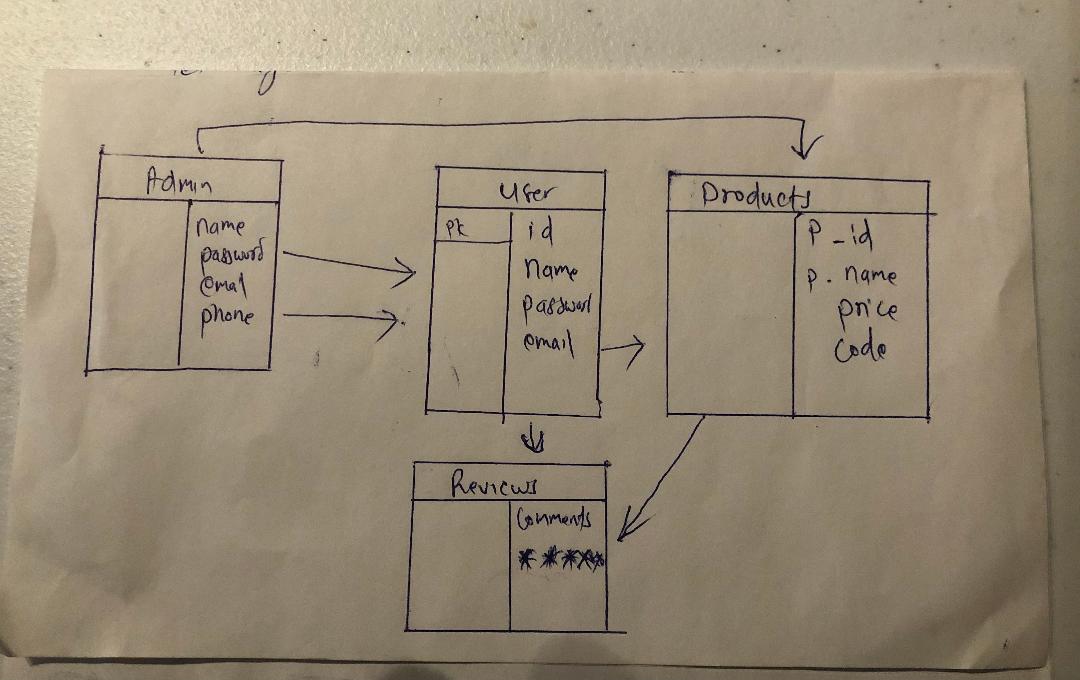 Admin
name
password
email
phone
User
pk
id
name
password
email
Products
P_id
p. name
price
code
Reviews
Comments
*****